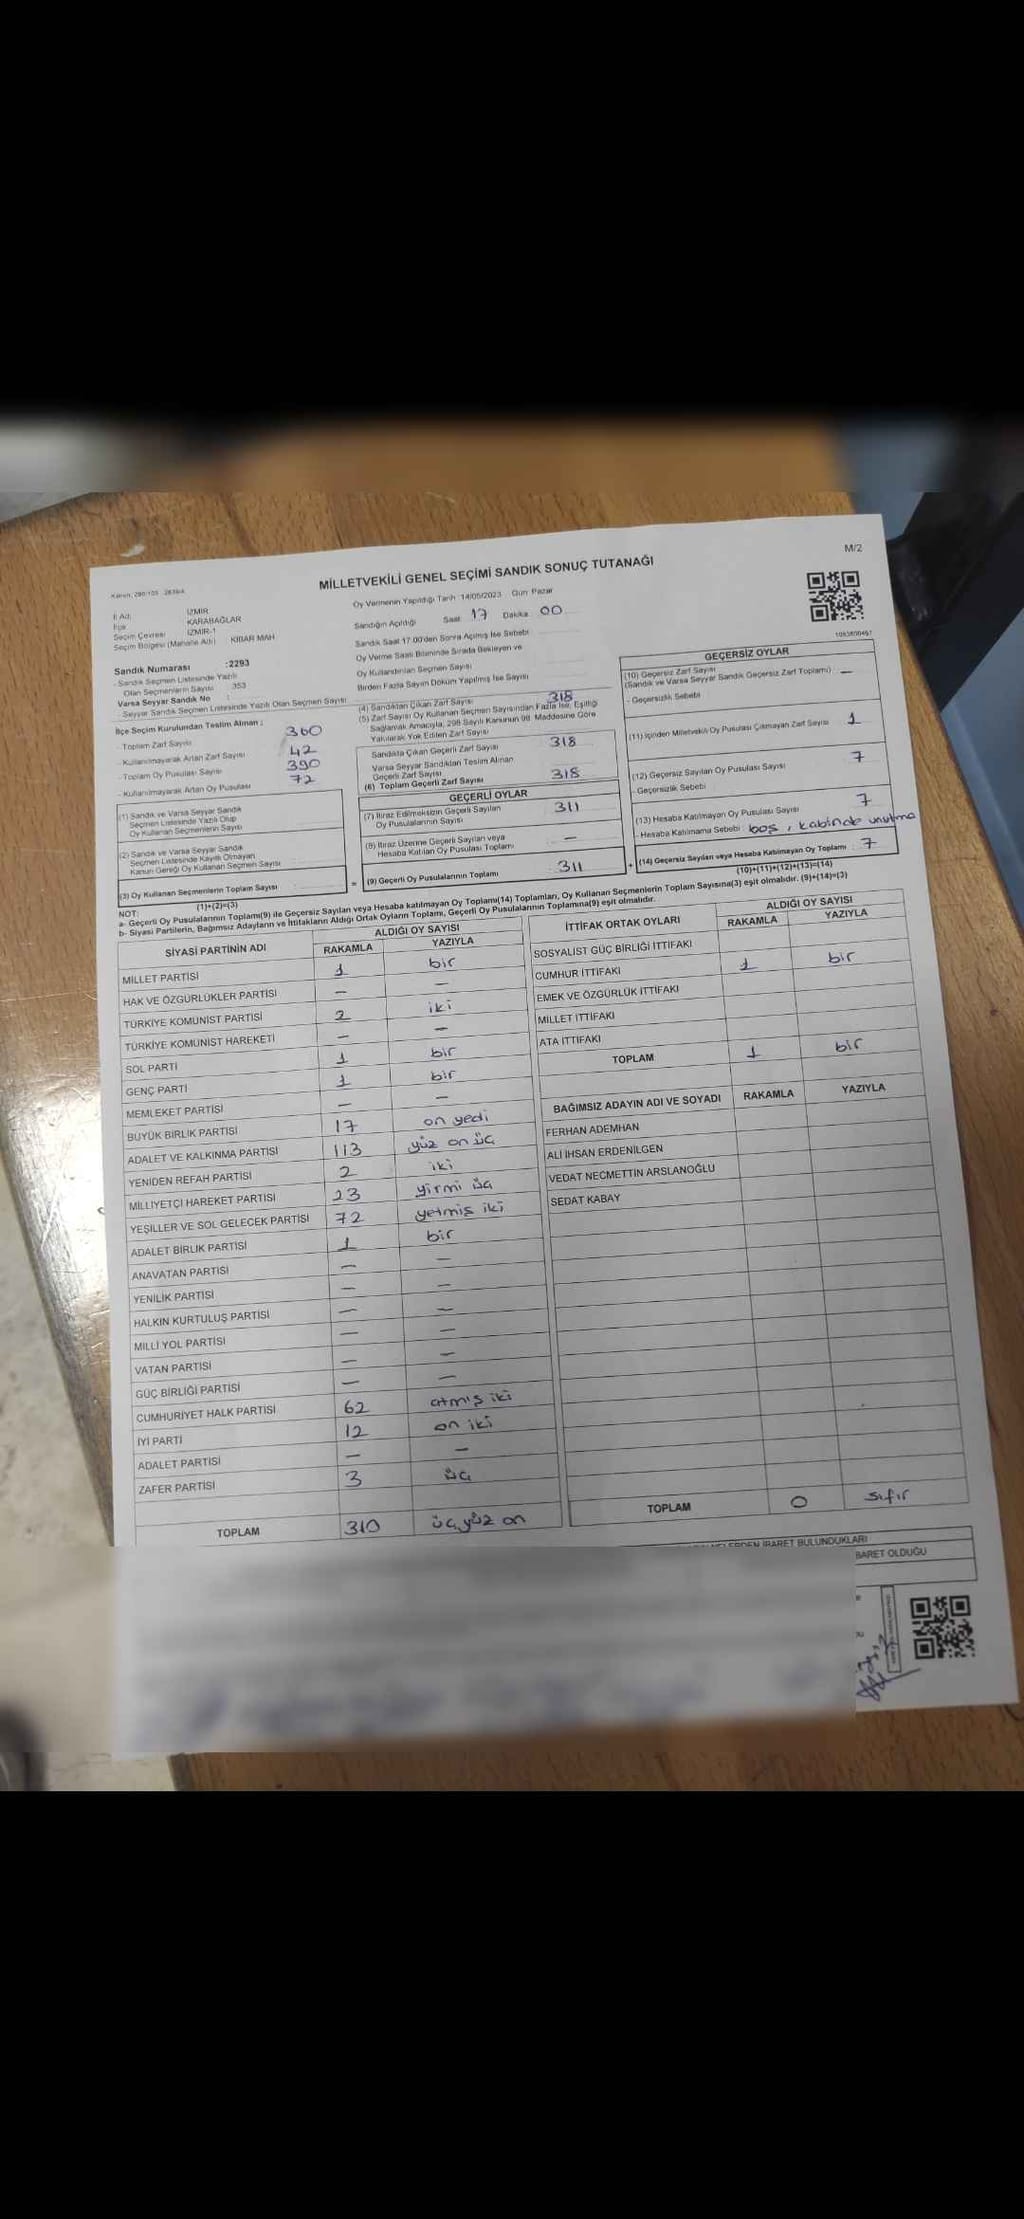 MİLLETVEKİLİ GENEL SEÇİMİ SANDIK SONUÇ TUTANAĞI
M/2
İl Adı: İZMİR
İlçe KARABAĞLAR
Seçim Çevresi İZMİR-1
Seçim Bölgesi (Mahalle Adı) KİBAR MAH
Sandık Numarası :2293
- Sandık Seçmen Listesinde Yazılı
Olan Seçmenlerin Sayısı : 353
Varsa Seyyar Sandık No :
- Seyyar Sandık Seçmen Listesinde Yazılı Olan Seçmen Sayısı
İlçe Seçim Kurulundan Teslim Alınan ;
- Toplam Zarf Sayısı 360
- Kullanılmayarak Artan Zarf Sayısı 42
- Toplam Oy Pusulası Sayısı 390
- Kullanılmayarak Artan Oy Pusulası 72
(1) Sandık ve Varsa Seyyar Sandık
Seçmen Listesinde Yazılı Olup
Oy Kullanan Seçmenlerin Sayısı
(2) Sandık ve Varsa Seyyar Sandık
Seçmen Listesinde Kayıtlı Olmayan
Kanun Gereği Oy Kullanan Seçmen Sayısı
(3) Oy Kullanan Seçmenlerin Toplam Sayısı
(1)+(2)=(3)
Oy Vermenin Yapıldığı Tarih :14/05/2023 Gün: Pazar
Sandığın Açıldığı Saat 17 Dakika 00
Sandık Saat 17.00'den Sonra Açılmış İse Sebebi
Oy Verme Saati Bitiminde Sırada Bekleyen ve
Oy Kullandırılan Seçmen Sayısı
Birden Fazla Sayım Döküm Yapılmış İse Sayısı
(4) Sandıktan Çıkan Zarf Sayısı 318
(5) Zarf Sayısı Oy Kullanan Seçmen Sayısından Fazla İse, Eşitliği
Sağlamak Amacıyla, 298 Sayılı Kanunun 98. Maddesine Göre
Yakılarak Yok Edilen Zarf Sayısı
Sandıkta Çıkan Geçerli Zarf Sayısı 318
Varsa Seyyar Sandıktan Teslim Alınan
Geçerli Zarf Sayısı
(6) Toplam Geçerli Zarf Sayısı 318
GEÇERLİ OYLAR
(7) İtiraz Edilmeksizin Geçerli Sayılan
Oy Pusulalarının Sayısı 311
(8) İtiraz Üzerine Geçerli Sayılan veya
Hesaba Katılan Oy Pusulası Toplamı —
= (9) Geçerli Oy Pusulalarının Toplamı 311 +
GEÇERSİZ OYLAR
(10) Geçersiz Zarf Sayısı
(Sandık ve Varsa Seyyar Sandık Geçersiz Zarf Toplamı) —
- Geçersizlik Sebebi
(11) İçinden Milletvekili Oy Pusulası Çıkmayan Zarf Sayısı 1
(12) Geçersiz Sayılan Oy Pusulası Sayısı 7
- Geçersizlik Sebebi
(13) Hesaba Katılmayan Oy Pusulası Sayısı 7
- Hesaba Katılmama Sebebi boş, kabinde unutma
(14) Geçersiz Sayılan veya Hesaba Katılmayan Oy Toplamı 7
(10)+(11)+(12)+(13)=(14)
NOT:
a- Geçerli Oy Pusulalarının Toplamı(9) ile Geçersiz Sayılan veya Hesaba katılmayan Oy Toplamı(14) Toplamları, Oy Kullanan Seçmenlerin Toplam Sayısına(3) eşit olmalıdır. (9)+(14)=(3)
b- Siyasi Partilerin, Bağımsız Adayların ve İttifakların Aldığı Ortak Oyların Toplamı, Geçerli Oy Pusulalarının Toplamına(9) eşit olmalıdır.
SİYASİ PARTİNİN ADI ALDIĞI OY SAYISI
RAKAMLA YAZIYLA
MİLLET PARTİSİ 1 bir
HAK VE ÖZGÜRLÜKLER PARTİSİ — —
TÜRKİYE KOMÜNİST PARTİSİ 2 iki
TÜRKİYE KOMÜNİST HAREKETİ — —
SOL PARTİ 1 bir
GENÇ PARTİ 1 bir
MEMLEKET PARTİSİ — —
BÜYÜK BİRLİK PARTİSİ 17 on yedi
ADALET VE KALKINMA PARTİSİ 113 yüz on üç
YENİDEN REFAH PARTİSİ 2 iki
MİLLİYETÇİ HAREKET PARTİSİ 23 yirmi üç
YEŞİLLER VE SOL GELECEK PARTİSİ 72 yetmiş iki
ADALET BİRLİK PARTİSİ 1 bir
ANAVATAN PARTİSİ — —
YENİLİK PARTİSİ — —
HALKIN KURTULUŞ PARTİSİ — —
MİLLİ YOL PARTİSİ — —
VATAN PARTİSİ — —
GÜÇ BİRLİĞİ PARTİSİ — —
CUMHURİYET HALK PARTİSİ 62 atmış iki
İYİ PARTİ 12 on iki
ADALET PARTİSİ — —
ZAFER PARTİSİ 3 üç
TOPLAM 310 üç yüz on
İTTİFAK ORTAK OYLARI ALDIĞI OY SAYISI
RAKAMLA YAZIYLA
SOSYALİST GÜÇ BİRLİĞİ İTTİFAKI
CUMHUR İTTİFAKI 1 bir
EMEK VE ÖZGÜRLÜK İTTİFAKI
MİLLET İTTİFAKI
ATA İTTİFAKI
TOPLAM 1 bir
BAĞIMSIZ ADAYIN ADI VE SOYADI RAKAMLA YAZIYLA
FERHAN ADEMHAN
ALİ İHSAN ERDENİLGEN
VEDAT NECMETTİN ARSLANOĞLU
SEDAT KABAY
TOPLAM 0 sıfır
İBARET BULUNDUKLARI
BARET OLDUĞU